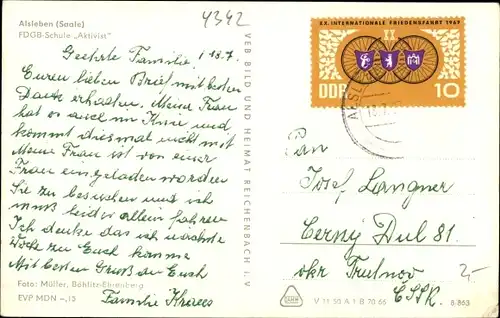 Alsleben (Saale)
FDGB-Schule „Aktivist"
4342
18.7.
Geehrte Familie,
Euren lieben Brief mit besten
Dank erhalten. Meine Frau
hat es auch im Knie und
kommt diesmal nicht mit
Meine Frau ist von einer
Frau eingeladen worden
Sie zu besuchen und ich
muß leider allein fahren
Ich denke das ich nächste
Woche zu Euch komme
Mit besten Gruß an Euch
Familie
Foto: Müller, Böhlitz-Ehrenberg
EVP MDN -,15
VEB BILD UND HEIMAT REICHENBACH I. V.
XX. INTERNATIONALE FRIEDENSFAHRT 1967
XX
DDR 10
ALSL
Pan
Josef Langner
Černý Důl 81.
okr Trutnov
ČSSR.
2,-
V 11 50 A 1 B 70 66
8/863